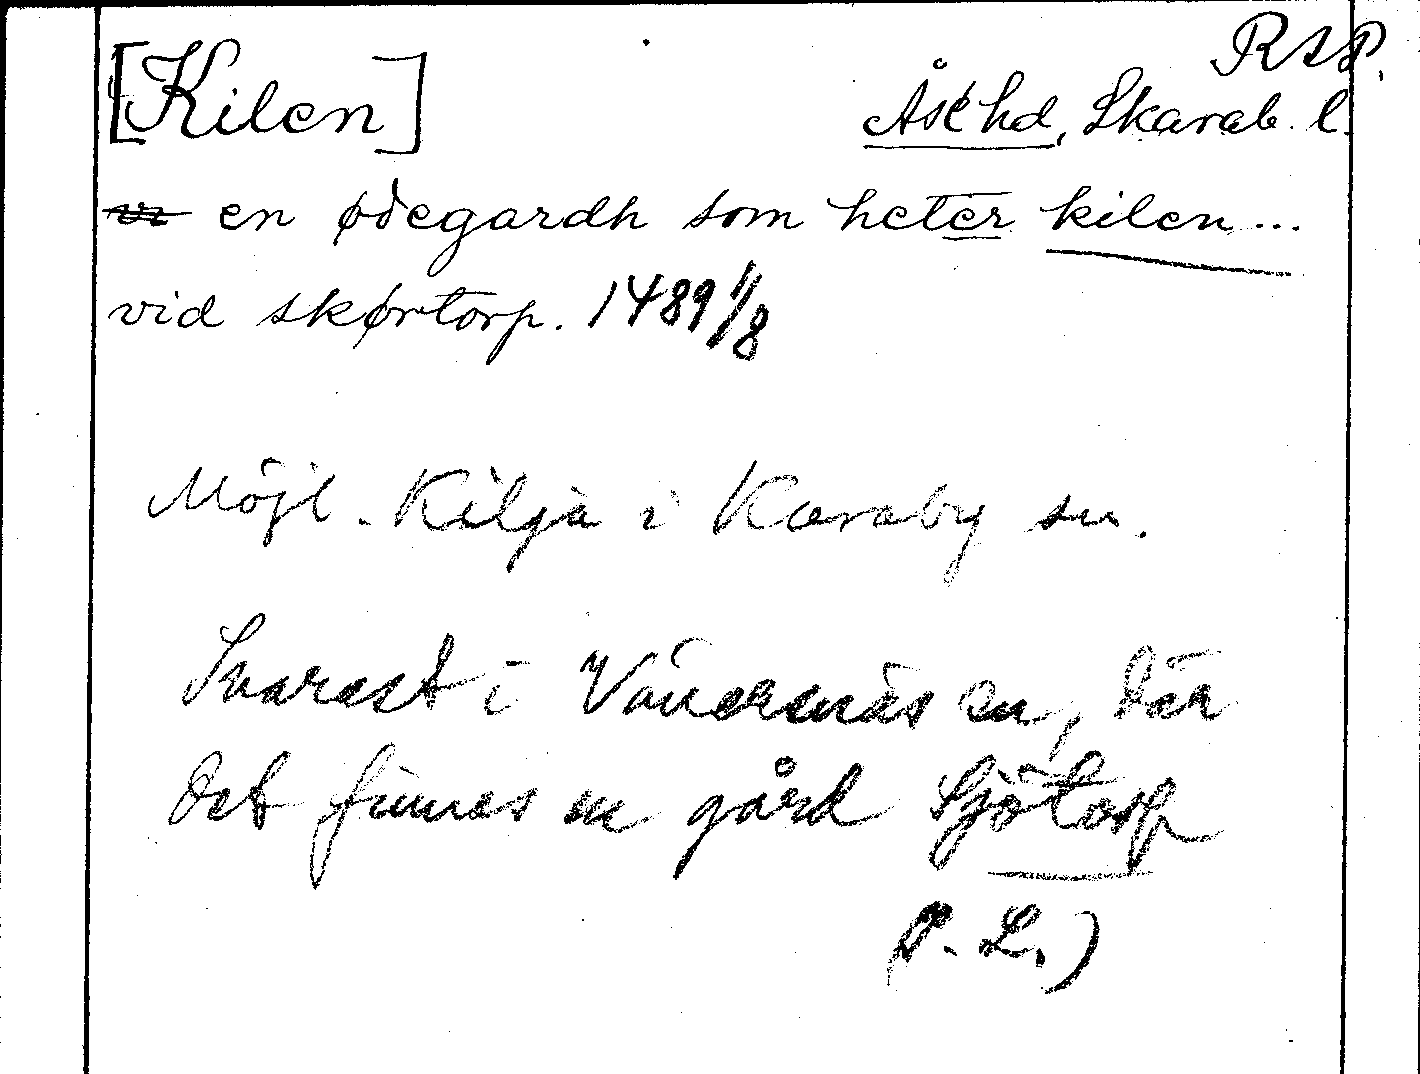 RAP.
[Kilen]
Åse hd, Skarab. l.
en ødegardh som heter kilen...
vid skørtorp. 1489 1/8
Möjl. Kilja i Karaby sn.
Snarast i Vänersnäs sn, där
det finnes en gård Sjötorp
P. L.)